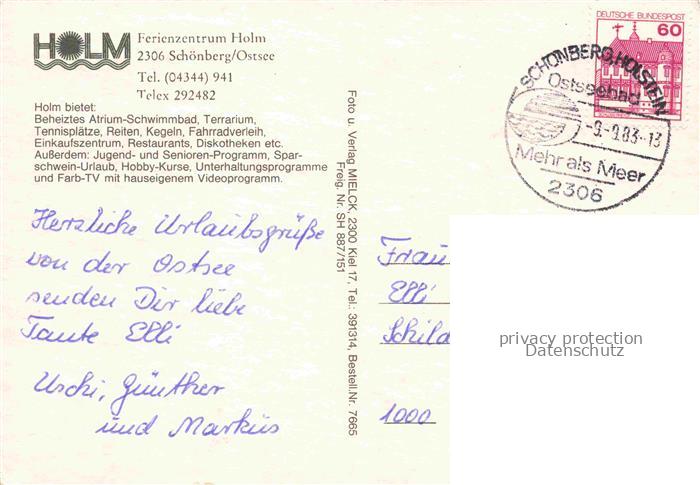 HOLM
Ferienzentrum Holm
2306 Schönberg/Ostsee
Tel. (04344) 941
Telex 292482
Holm bietet:
Beheiztes Atrium-Schwimmbad, Terrarium,
Tennisplätze, Reiten, Kegeln, Fahrradverleih,
Einkaufszentrum, Restaurants, Diskotheken etc.
Außerdem: Jugend- und Senioren-Programm, Spar-
schwein-Urlaub, Hobby-Kurse, Unterhaltungsprogramme
und Farb-TV mit hauseigenem Videoprogramm.
Herzliche Urlaubsgrüße
von der Ostsee
senden Dir liebe
Tante Elli
Uschi, Günther
und Markus
Foto u. Verlag MIELCK, 2300 Kiel 17, Tel.: 391314, Bestell.Nr. 7665
Freig. Nr. SH 887/151
DEUTSCHE BUNDESPOST
60
SCHÖNBERG, HOLSTEIN
Ostseebad
-9.-9.83-13
Mehr als Meer
2306
Frau
Elli
Schild
1000
privacy protection
Datenschutz